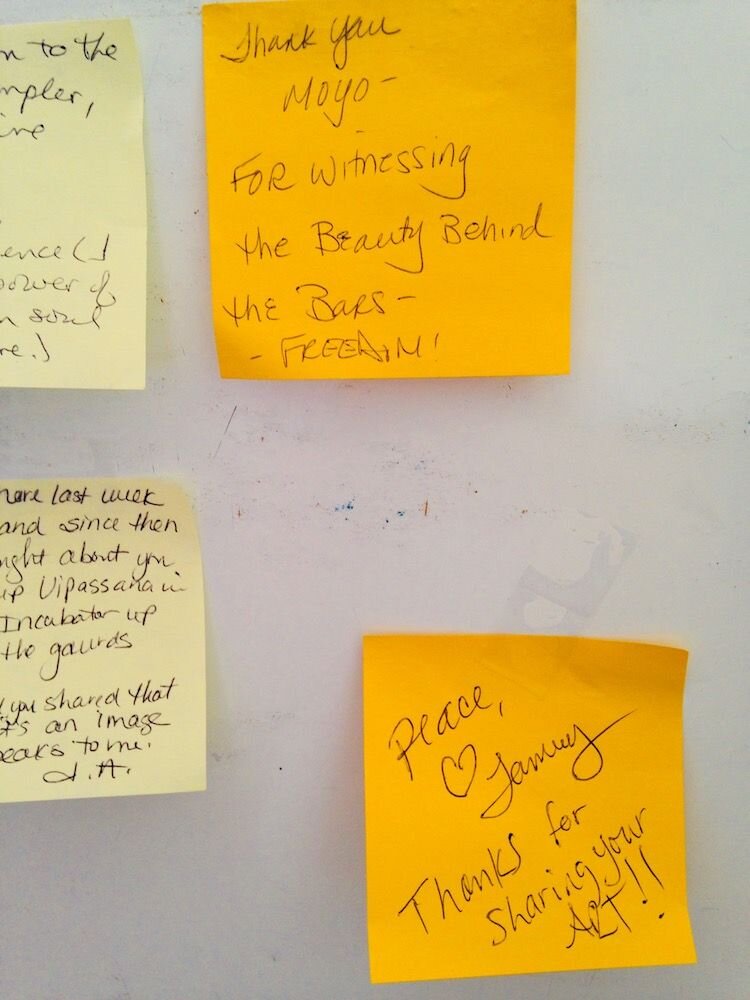 n to the
mpler,
ine
ence(]
power of
n soul
re.]
Thank You
Moyo-
FOR Witnessing
the Beauty Behind
the Bars-
- FREEDOM!
here last week
and since then
ught about you
up Vipassana in
Incubator up
the gaurds
you shared that
it's an image
eaks to me.
J.A.
Peace,
♡ Tammy
Thanks for
sharing your
ART!!